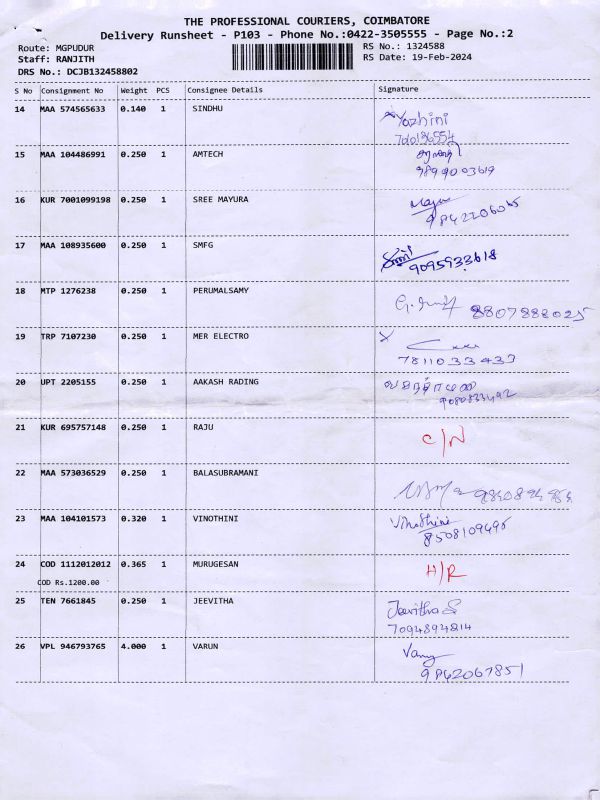 THE PROFESSIONAL COURIERS, COIMBATORE
Delivery Runsheet - P103 - Phone No.:0422-3505555 - Page No.:2
Route: MGPUDUR RS No.: 1324588
Staff: RANJITH RS Date: 19-Feb-2024
DRS No.: DCJB132458802
S No Consignment No Weight PCS Consignee Details Signature
14 MAA 574565633 0.140 1 SINDHU
Yazhini
15 MAA 104486991 0.250 1 AMTECH
9894003619
16 KUR 7001099198 0.250 1 SREE MAYURA
9842206065
17 MAA 108935600 0.250 1 SMFG
9095933618
18 MTP 1276238 0.250 1 PERUMALSAMY
8807888025
19 TRP 7107230 0.250 1 MER ELECTRO
7811033433
20 UPT 2205155 0.250 1 AAKASH RADING
21 KUR 695757148 0.250 1 RAJU
C/N
22 MAA 573036529 0.250 1 BALASUBRAMANI
23 MAA 104101573 0.320 1 VINOTHINI Vinothini
8508109495
24 COD 1112012012 0.365 1 MURUGESAN
H/R
COD Rs.1200.00
25 TEN 7661845 0.250 1 JEEVITHA Jeevitha S
7094894814
26 VPL 946793765 4.000 1 VARUN
9842067851